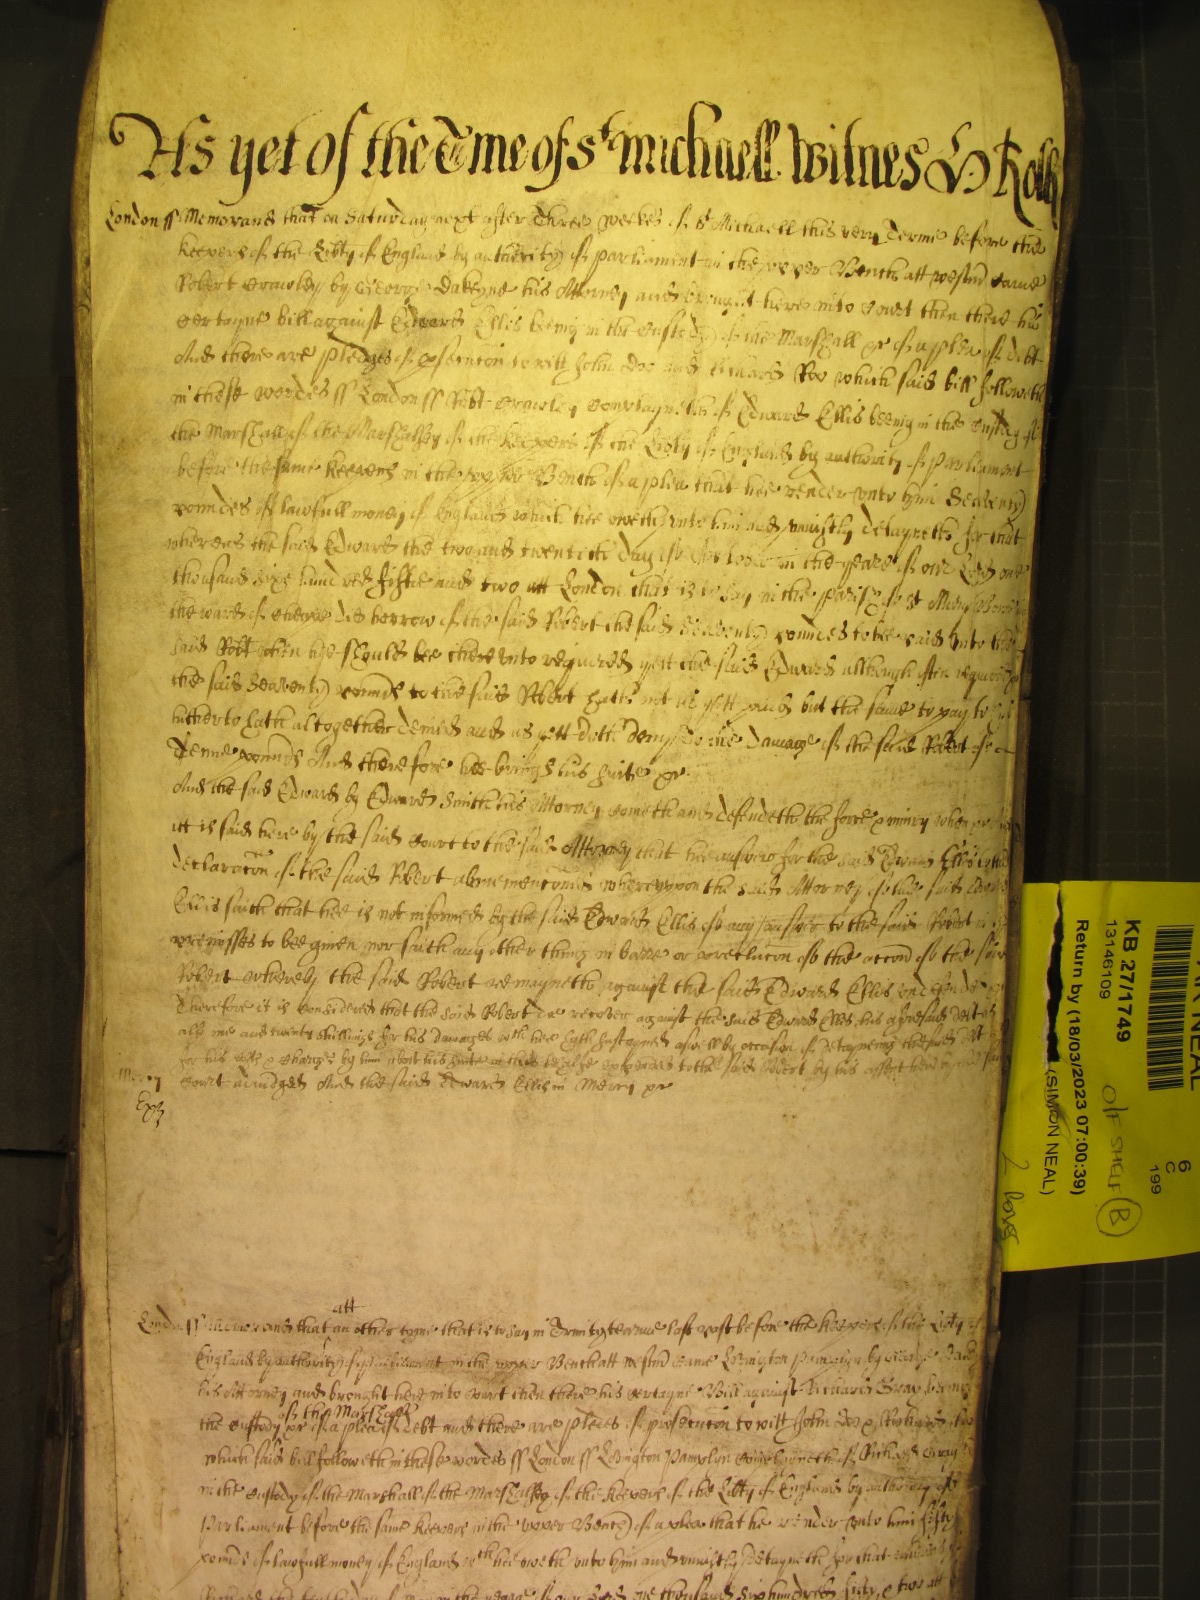 As yet of the Tme of St Michaell Witnes H Rolle
London ss Memorand that on Saturday next after Three weekes of St Michaell this very Terme before the
Keepers of the Libty of England by authority of parliament in the upper Bench att Westmr came
Robert Crowley by George Dakeyne his Attorney and brought here into Court then there his
certayne bill against Edward Ellis being in the Custody of the Marshall &c of a plea of debt
And there are pledges of prsecucon to witt John Doe and Richard Roe which said bill followeth
in these wordes ss London ss Robt Crowley complayneth of Edward Ellis beeing in the Custody of
the Marshall of the Marshalsey of the Keepers of the Libty of England by authority of Parliament
before the same Keepers in the upper Bench of a plea that hee render unto him Seaventy
poundes of lawfull money of England which hee oweth unto him and uniustly detayneth for that
whereas the said Edward the two and twentieth day of October in the yeare of our Lord one
thousand sixe hundred fiftie and two att London that is to say in the parish of St Mary
the ward of Cheape did borrow of the said Robert the said Seaventy poundes to bee paid unto the
said Robt when hee should bee thereunto required yett the said Edward although often required
the said Seaventy pounds to the said Robert hath not as yett paid but the same to pay to him
hitherto hath altogether denied and as yett doth deny To the damage of the said Robert of
Tenne pounds And therefore hee brings his suite &c
And the said Edward by Edward Smith his Attorney cometh and defendeth the force &c iniury when &c
itt is said here by the said Court to the said Attorney that hee answer for the said Edward Ellis to the
declaracon of the said Robert abovemenconed whereupon the said Attorney of the said Edward
Ellis saith that hee is not informed by the said Edward Ellis of any answer to the said Robert in the
premisses to bee given nor saith any other thing in barre or preclucon of the accon of the said
Robert whereby the said Robert remayneth against the said Edward Ellis undefended
Therefore it is considered that the said Robert doe recover against the said Edward Ellis his aforesaid debt
also one and twenty shillings for his damages wch hee hath susteyned aswell by occasion of detayneing the said debt
for his costs & charges by him about his suite in this behalfe expended to the said Robert by his assent here by the said
Court adiudged And the said Edward Ellis in Mercy &c
Mercy
London ss Memorand that att an other tyme that is to say in Trinity tearme last past before the Keepers of the Libty of
England by authority of parliament in the upper Bench att Westmr came Lovington Pamplyn by George
his Attorney and brought here into Court then there his certayne Bill against Richard Gray being in
the Custody of the Marshall &c of a plea of debt and there are pledges of prsecucon to witt John Doe & Richard Roe
which said bill followeth in these wordes ss London ss Lovington Pamplyn complayneth of Richard Gray
in the Custody of the Marshall of the Marshalsey of the Keepers of the Libty of England by authority of
Parliament before the same Keepers in the upper Bench of a plea that he render unto him fifty
pounds of lawfull money of England wch hee oweth unto him and uniustly detayneth for that
one thousand six hundred fifty & two att
KB 27/1749
13146109
Return by (18/03/2023 07:00:39)
(SIMON NEAL)
6
C
199
O/F SHELF B